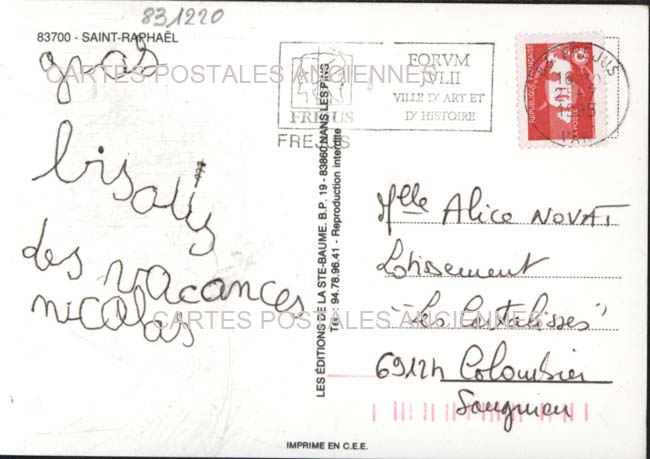 831220
83700 - SAINT-RAPHAËL
gros
bisous
des vacances
nicolas
CARTES POSTALES ANCIENNES
FREJUS
FORVM
IVLII
VILLE D'ART ET
D'HISTOIRE
FREJUS
RÉPUBLIQUE FRANÇAISE
LA POSTE
LES ÉDITIONS DE LA STE-BAUME. B.P. 19 - 83860 NANS LES PINS
Tél. : 94.78.96.41 - Reproduction interdite
Mlle Alice NOVAT
Lotissement
"Les Cristallisses"
69124 Colombier
Saugnieu
CARTES POSTALES ANCIENNES
IMPRIME EN C.E.E.